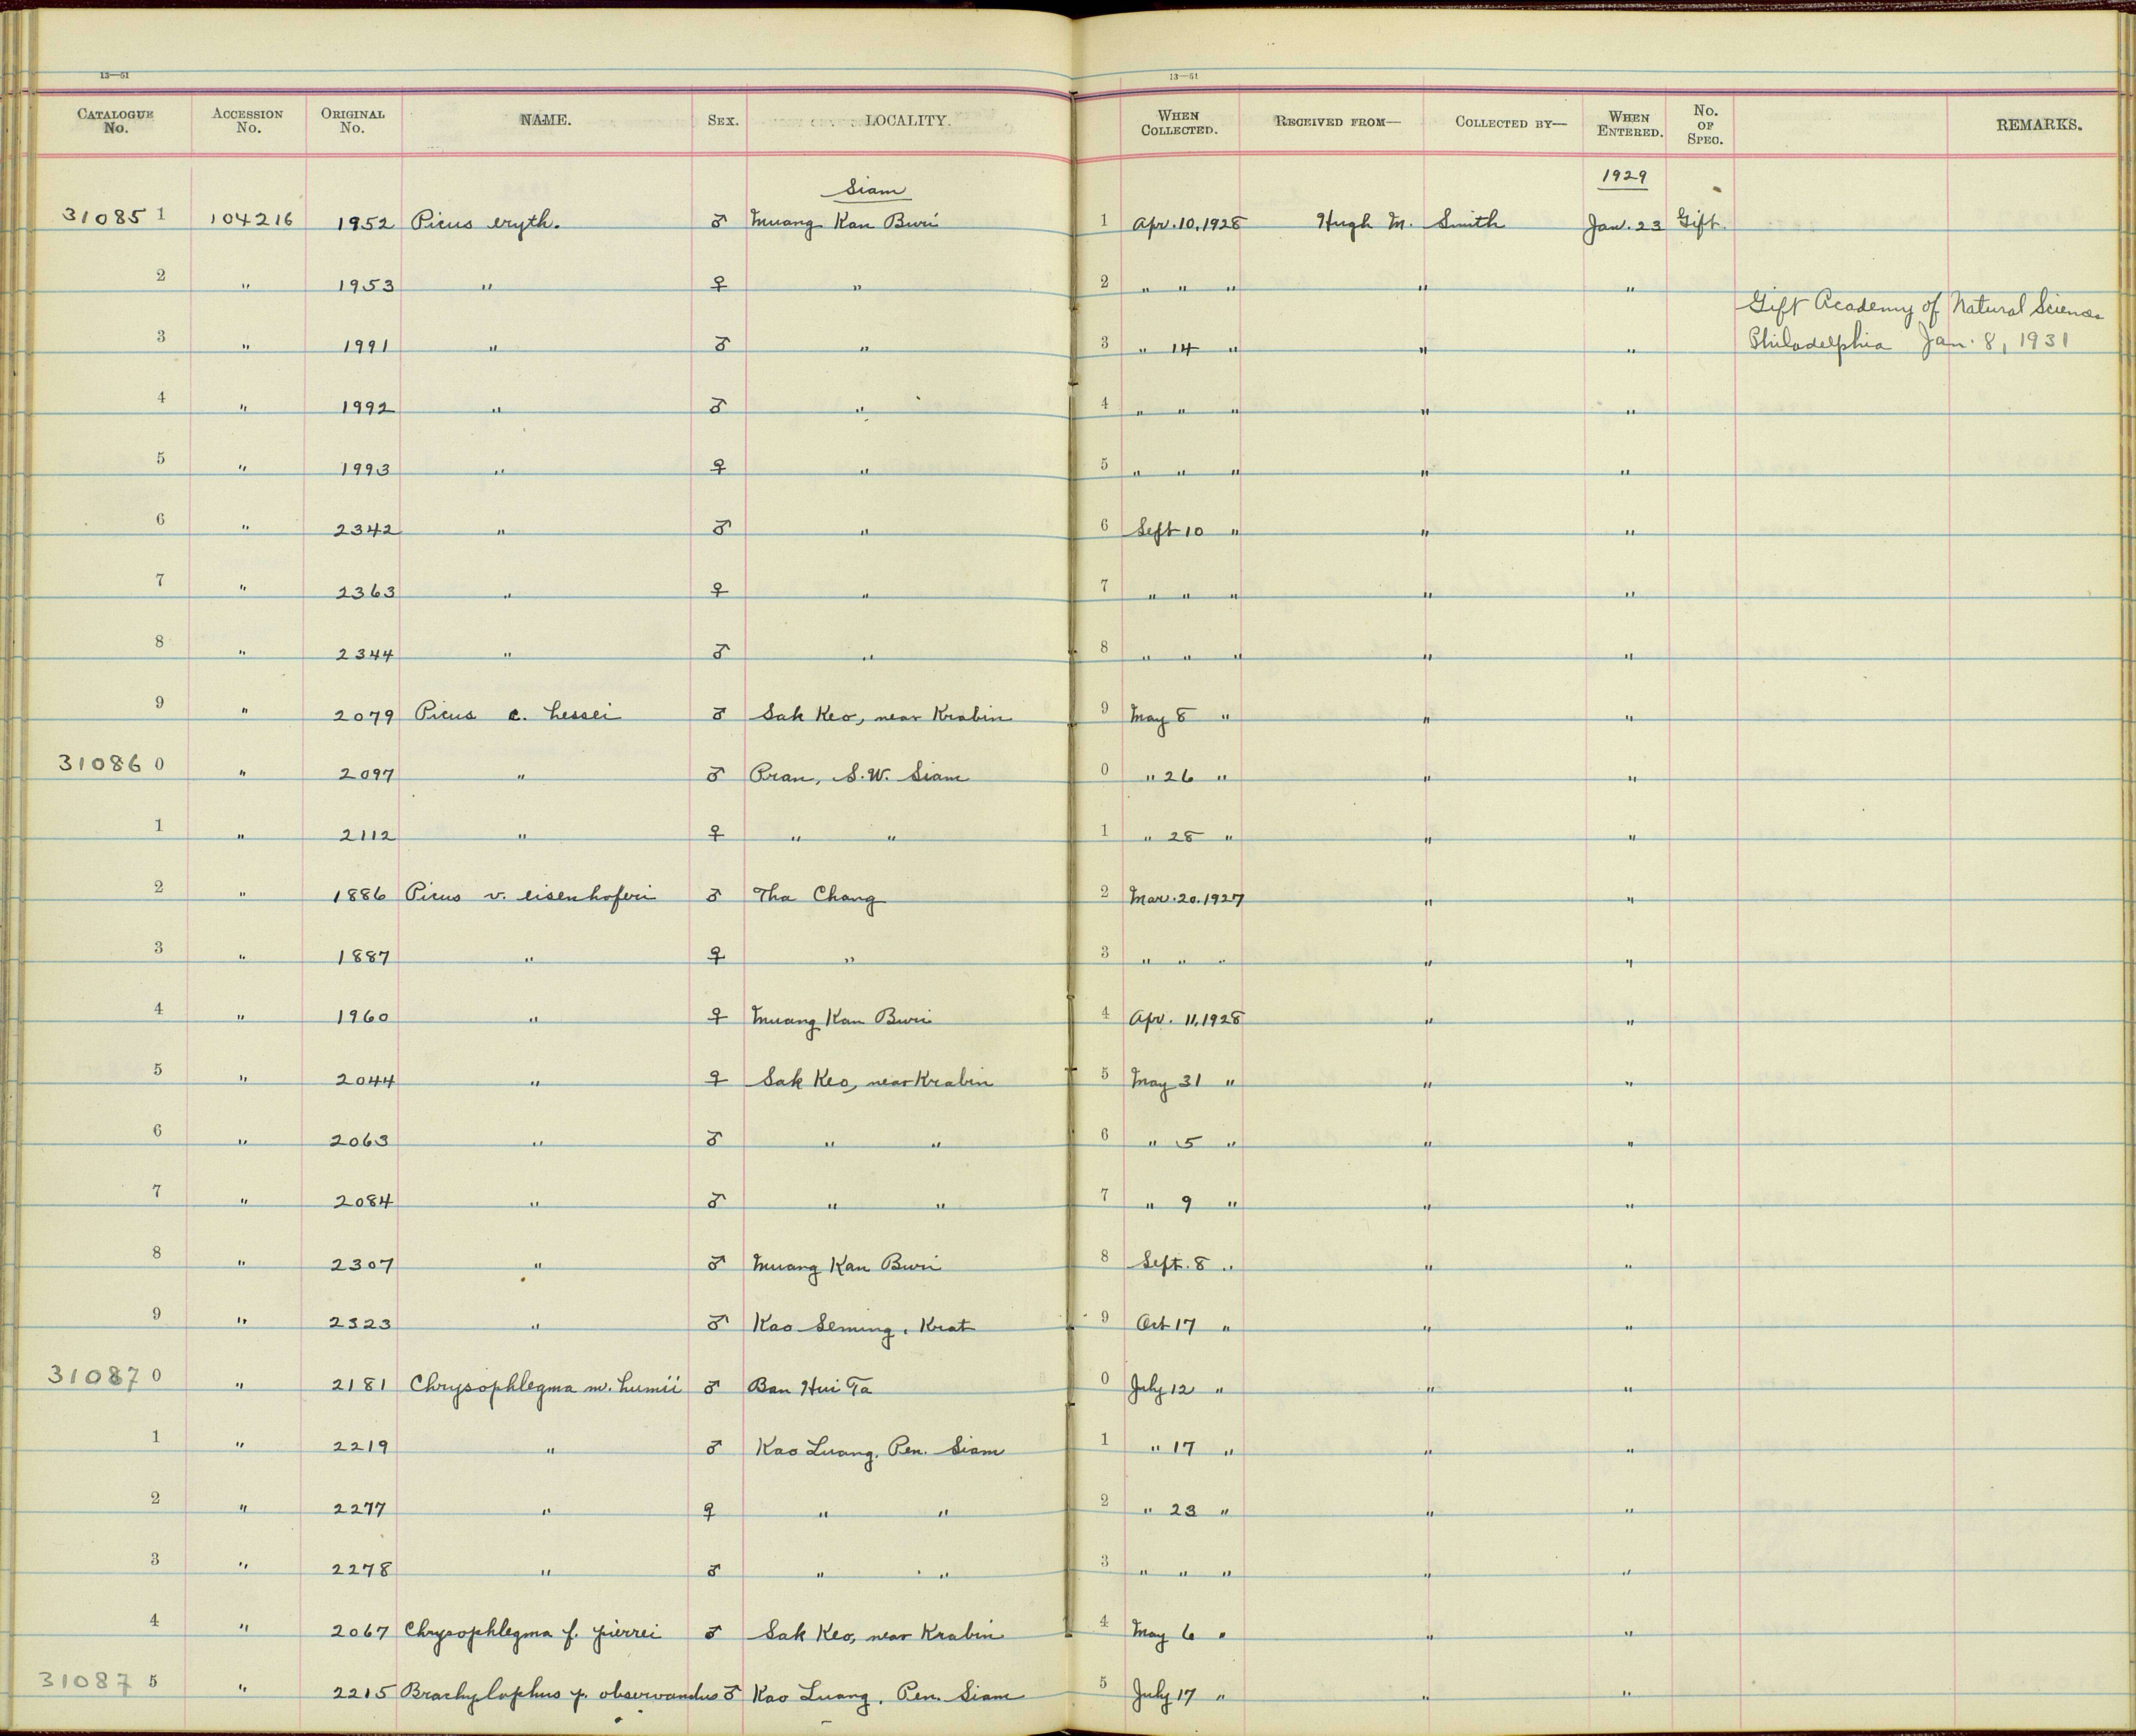 13—61 13—61
CATALOGUE No. ACCESSION No. ORIGINAL No. NAME. SEX. LOCALITY. WHEN COLLECTED. RECEIVED FROM— COLLECTED BY— WHEN ENTERED. No. OF SPEC. REMARKS.
Siam 1929
310851 104216 1952 Picus eryth. ♂ Muang Kan Buri 1 Apr. 10, 1928 Hugh M. Smith Jan. 23 Gift
2 " 1953 " ♀ " 2 " " " " "
Gift Academy of Natural Sciences
3 " 1991 " ♂ " 3 " 14 " " " Philadelphia Jan. 8, 1931
4 " 1992 " ♂ " 4 " " " " "
5 " 1993 " ♀ " 5 " " " " "
6 " 2342 " ♂ " 6 Sept 10 " " "
7 " 2363 " ♀ " 7 " " " " "
8 " 2344 " ♂ " 8 " " " " "
9 " 2079 Picus c. hessei ♂ Sak Keo, near Krabin 9 May 8 " " "
310860 " 2097 " ♂ Pran, S.W. Siam 0 " 26 " " "
1 " 2112 " ♀ " " 1 " 28 " " "
2 " 1886 Picus v. eisenhoferi ♂ Tha Chang 2 Mar. 20. 1927 " "
3 " 1887 " ♀ " 3 " " " " "
4 " 1960 " ♀ Muang Kan Buri 4 Apr. 11, 1928 " "
5 " 2044 " ♀ Sak Keo, near Krabin 5 May 31 " " "
6 " 2063 " ♂ " " 6 " 5 " " "
7 " 2084 " ♂ " " 7 " 9 " " "
8 " 2307 " ♂ Muang Kan Buri 8 Sept. 8 " " "
9 " 2323 " ♂ Kao Seming, Krat 9 Oct 17 " " "
310870 " 2181 Chrysophlegma m. humii ♂ Ban Hui Ta 0 July 12 " " "
1 " 2219 " ♂ Kao Luang, Pen. Siam 1 " 17 " " "
2 " 2277 " ♀ " " 2 " 23 " " "
3 " 2278 " ♂ " " 3 " " " " "
4 " 2067 Chrysophlegma f. pierrei ♂ Sak Keo, near Krabin 4 May 6 " " "
310875 " 2215 Brachylophus p. observandus ♂ Kao Luang, Pen. Siam 5 July 17 " " "